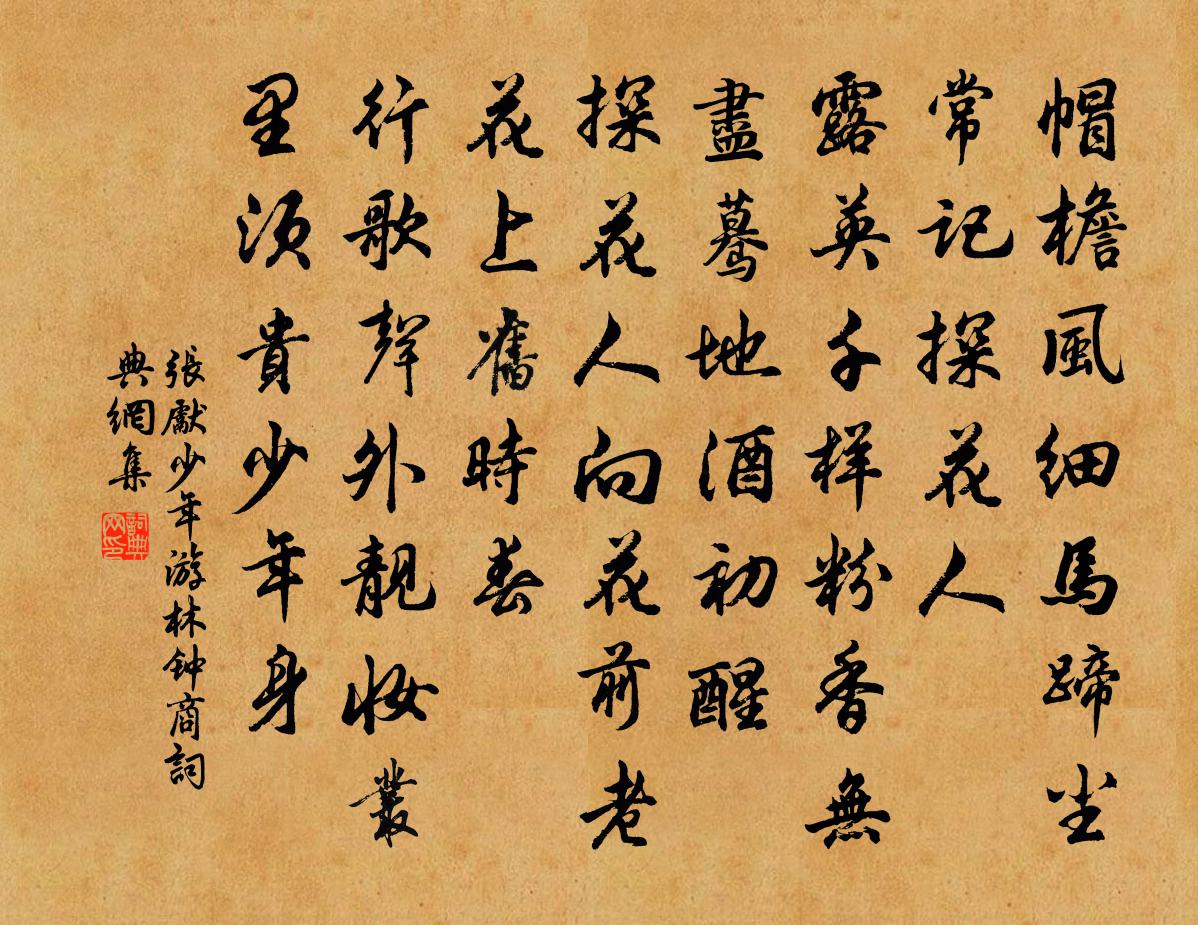 帽檐風細馬蹄尘
常记探花人
露英千样粉香無
盡驀地酒初醒
探花人向花前老
花上舊時春
行歌聲外靓妆叢
里须貴少年身
張獻少年游林钟商詞
典網集
詞典
网印